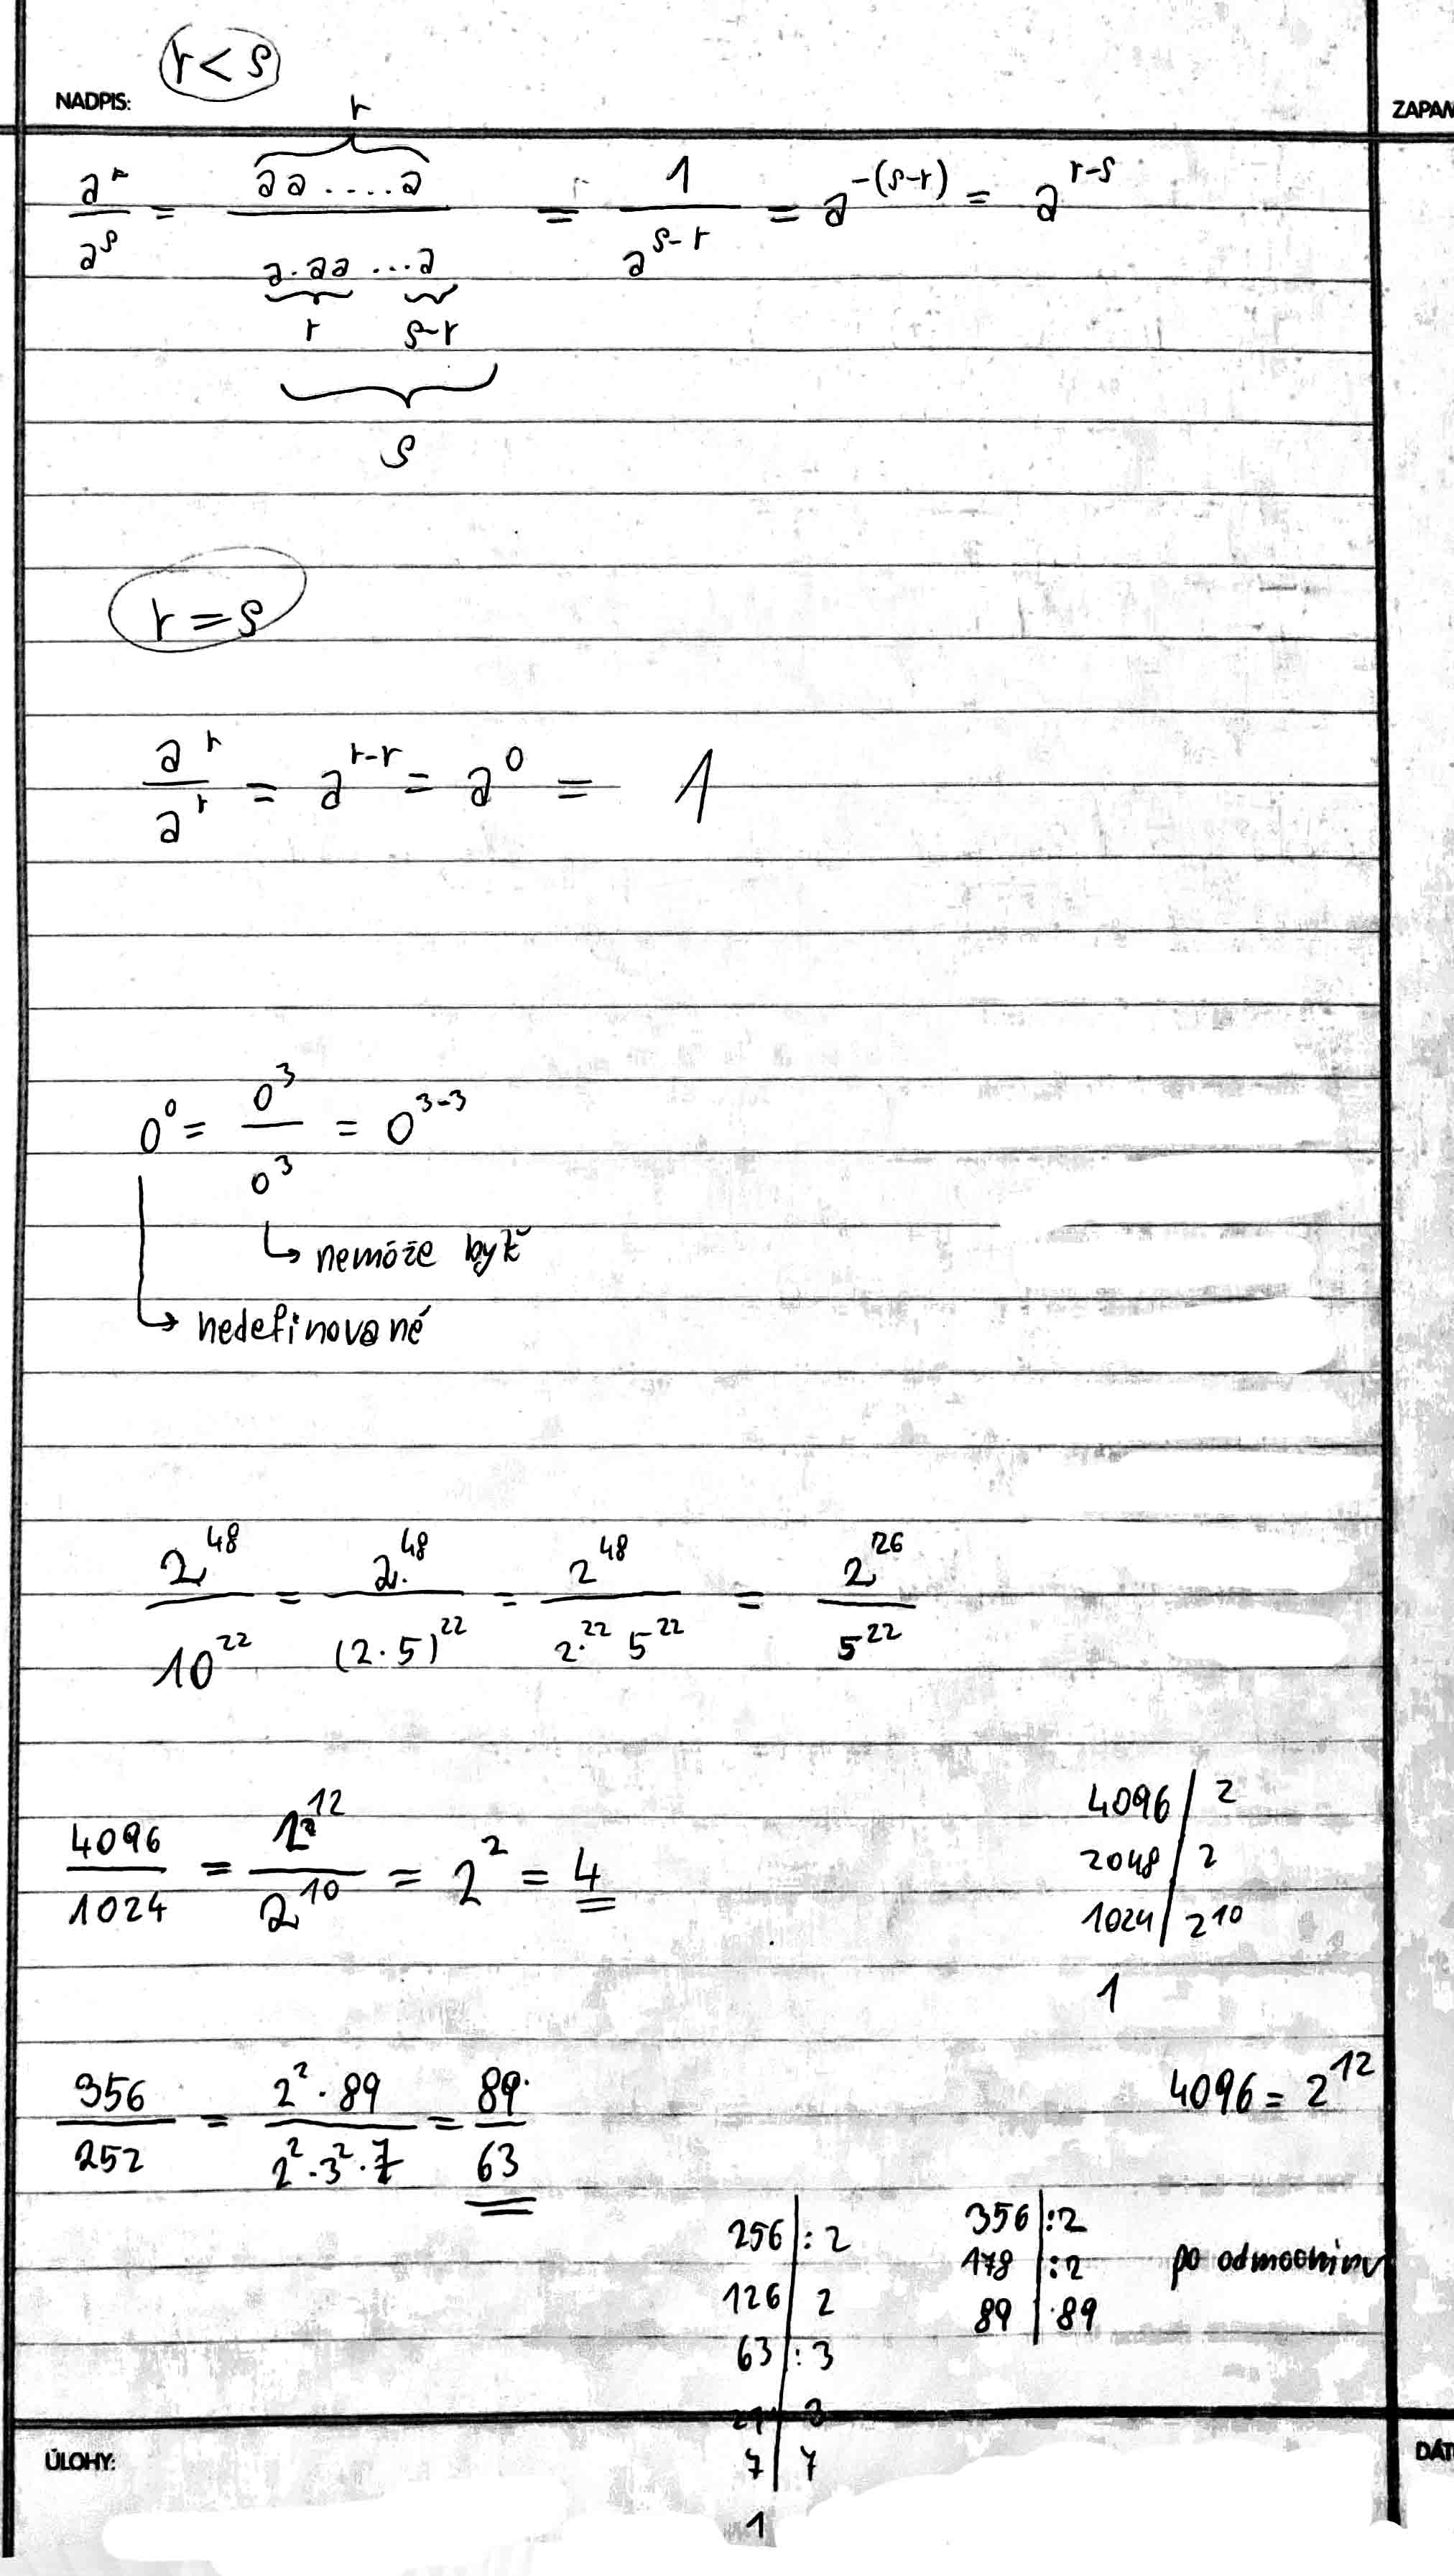 r < s
NADPIS:
ZAPAM
a^r / a^s = aa....a (r) / a·aa...a (r, s-r; s) = 1 / a^(s-r) = a^-(s-r) = a^(r-s)
r = s
a^r / a^r = a^(r-r) = a^0 = 1
0^0 = 0^3 / 0^3 = 0^(3-3)
nemôže byť
nedefinované
2^48 / 10^22 = 2^48 / (2·5)^22 = 2^48 / 2^22 5^22 = 2^26 / 5^22
4096 / 1024 = 2^12 / 2^10 = 2^2 = 4
4096 | 2
2048 | 2
1024 | 2^10
1
356 / 252 = 2^2 · 89 / 2^2 · 3^2 · 7 = 89 / 63
4096 = 2^12
256 | :2
126 | 2
63 | :3
21 | 3
7 | 7
1
356 | :2
178 | :2
89 | 89
po
ÚLOHY:
DÁT